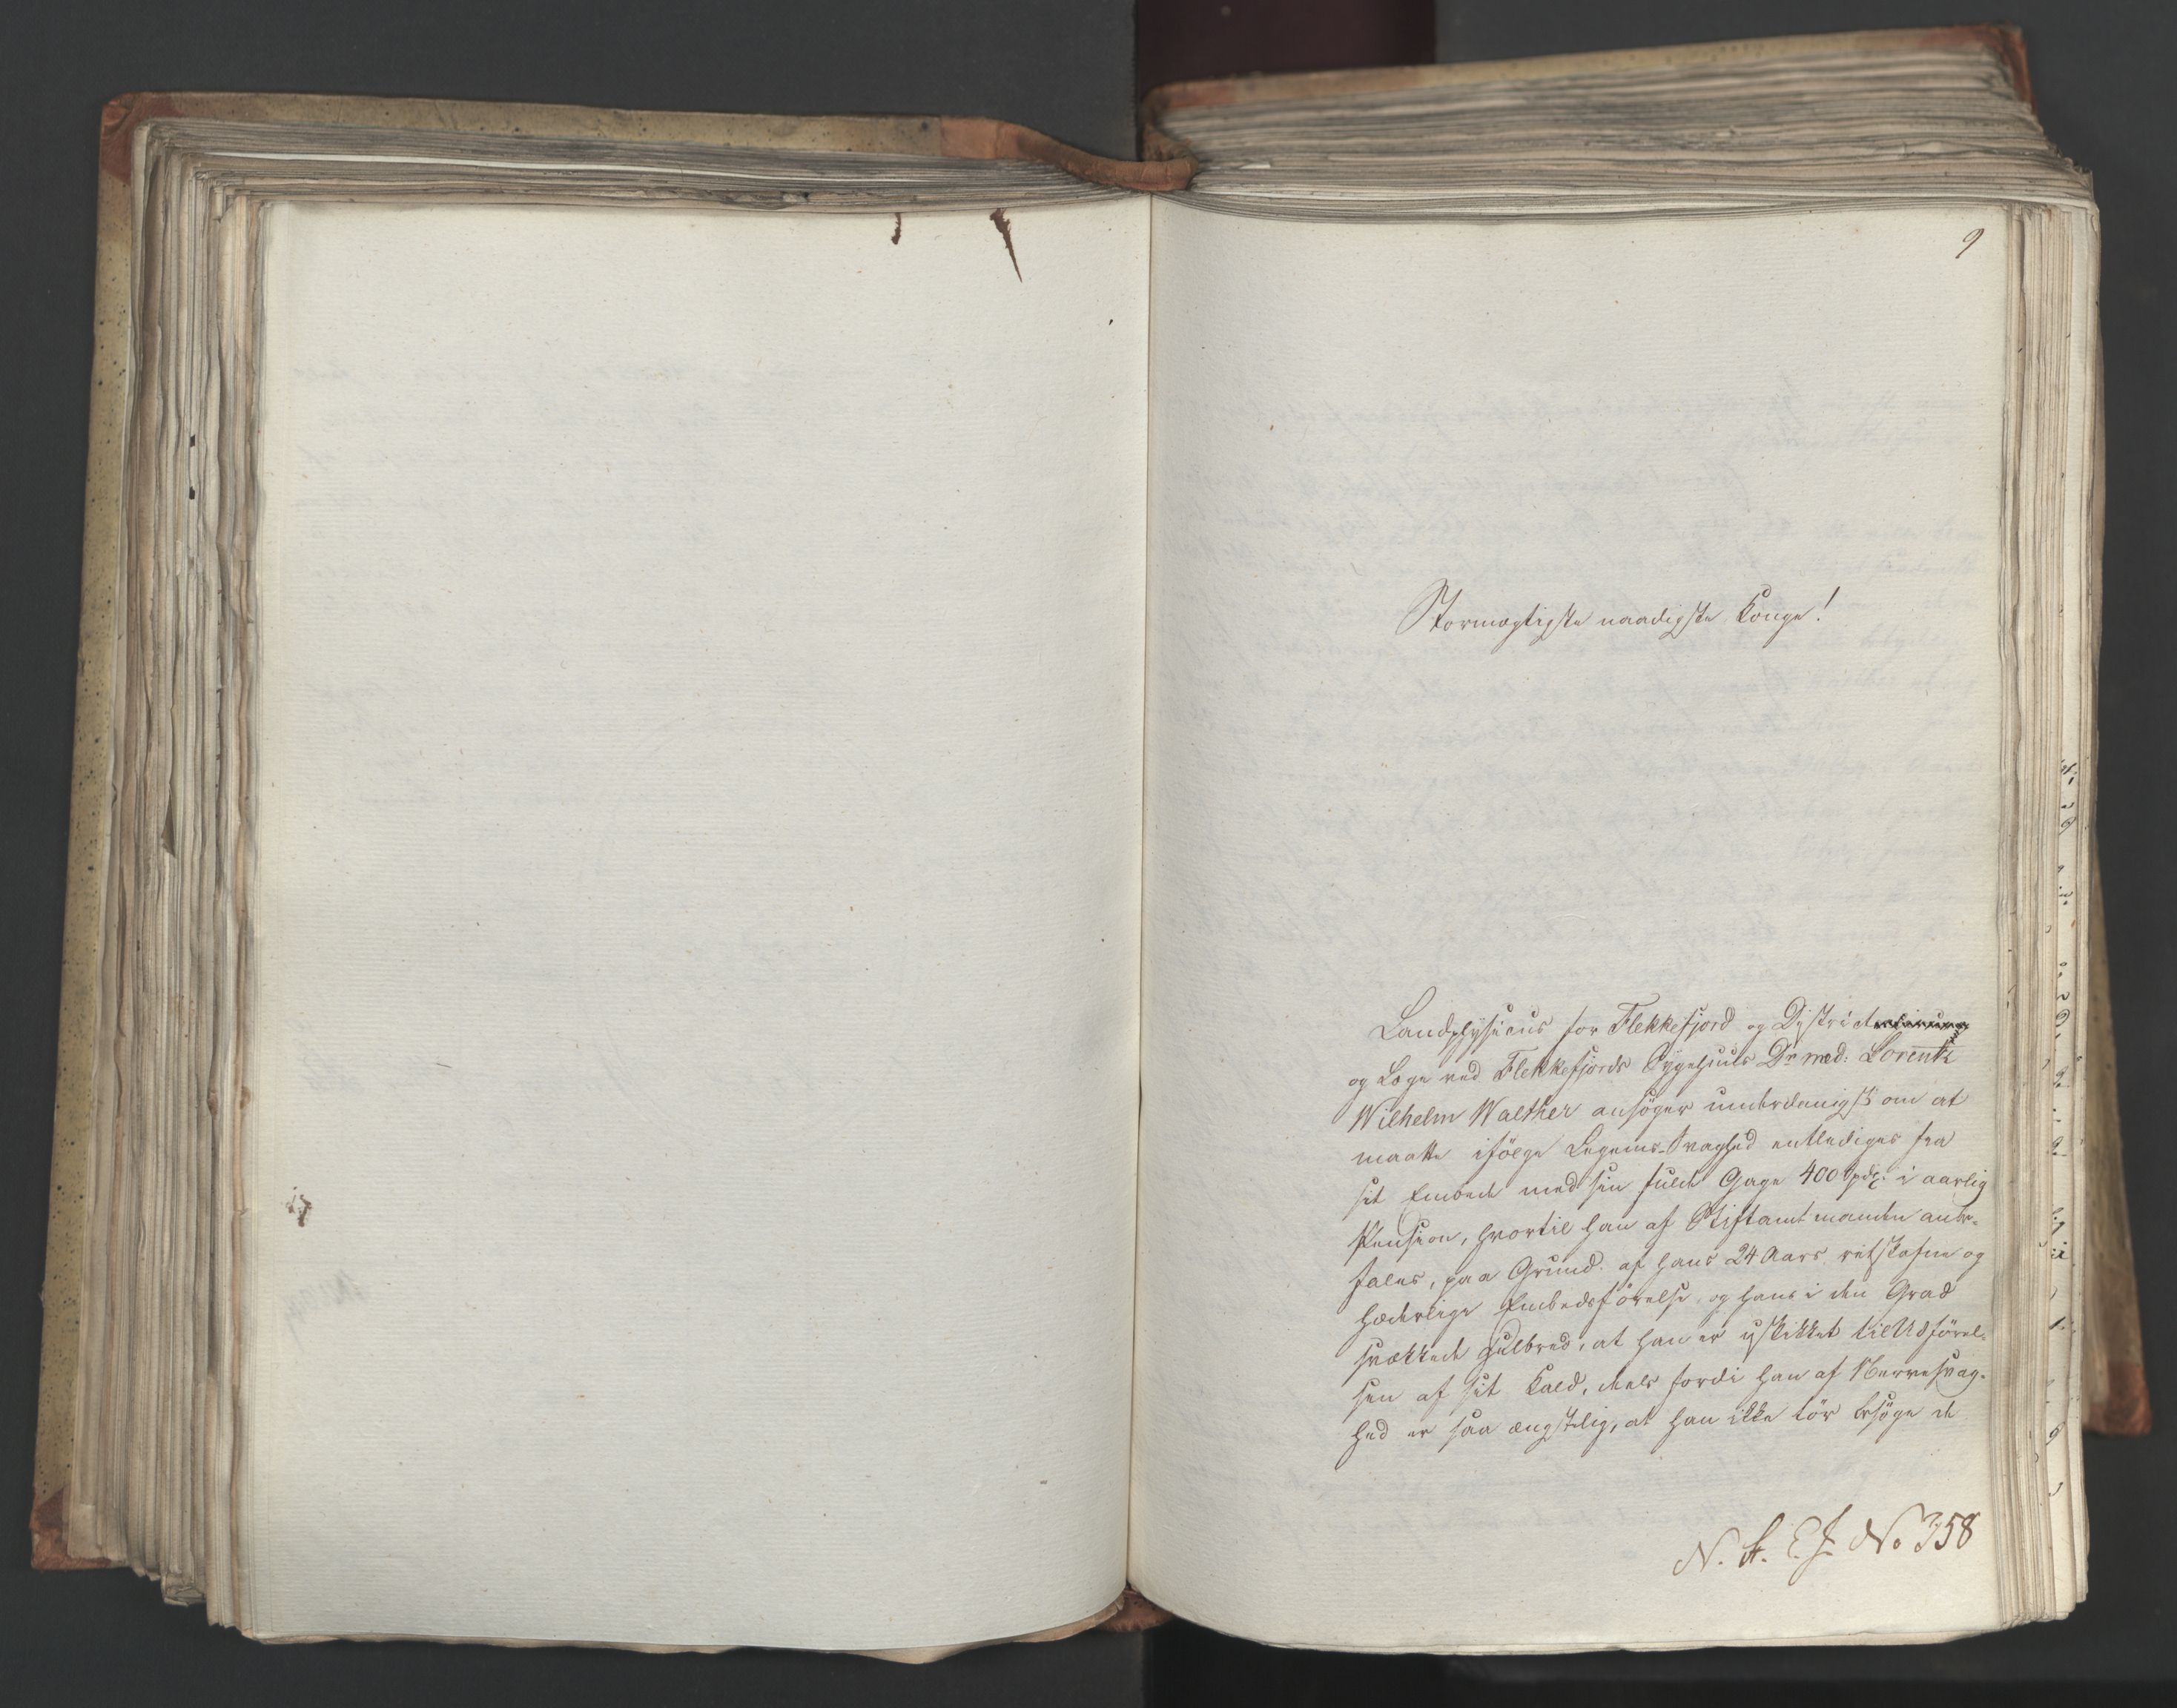 9
Stormægtigste naadigste Konge!
Landphysicus for Flekkefjord og District
og Læge ved Flekkefjords Sygehuus Dr med: Lorentz
Wilhelm Walther ansöger underdanigst om at
maatte ifölge Legems-Svaghed entlediges fra
sit Embede med sin fulde Gage 400 Spdlr. i aarlig
Pension, hvortil han af Stiftamtmanden anbe-
fales, paa Grund af hans 24 Aars retskafne og
hæderlige Embedsförelse og hans i den Grad
svækkede Helbred, at han er uskikket til Udförel-
sen af sit Kald, deels fordi han af Nervesvag-
hed er saa ængstelig, at han ikke tör besöge de
N. A. E. J. No 358